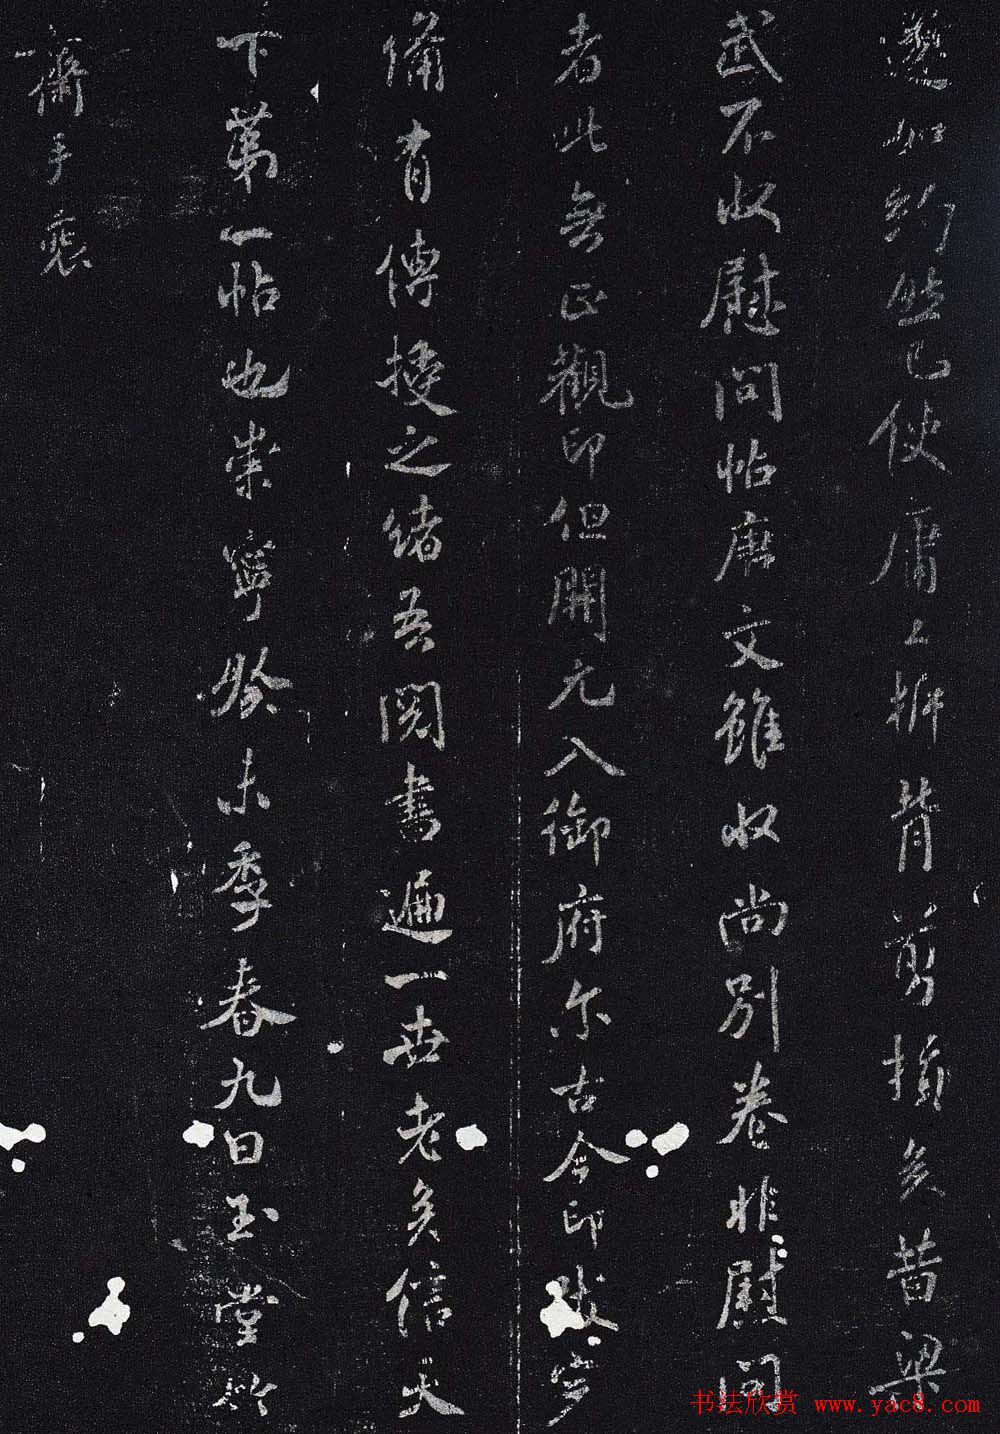 遂如約然已使庸工拆背剪損矣昔梁
武不收慰問帖唐文雖收尚別卷非慰問
者此無正觀印但開元入御府尔古今印跋完
備有傳授之緒吾閱書遍一世老矣信天
下第一帖也崇寧癸未季春九日玉堂竹
齋手裝
书法欣赏 www.yac8.com